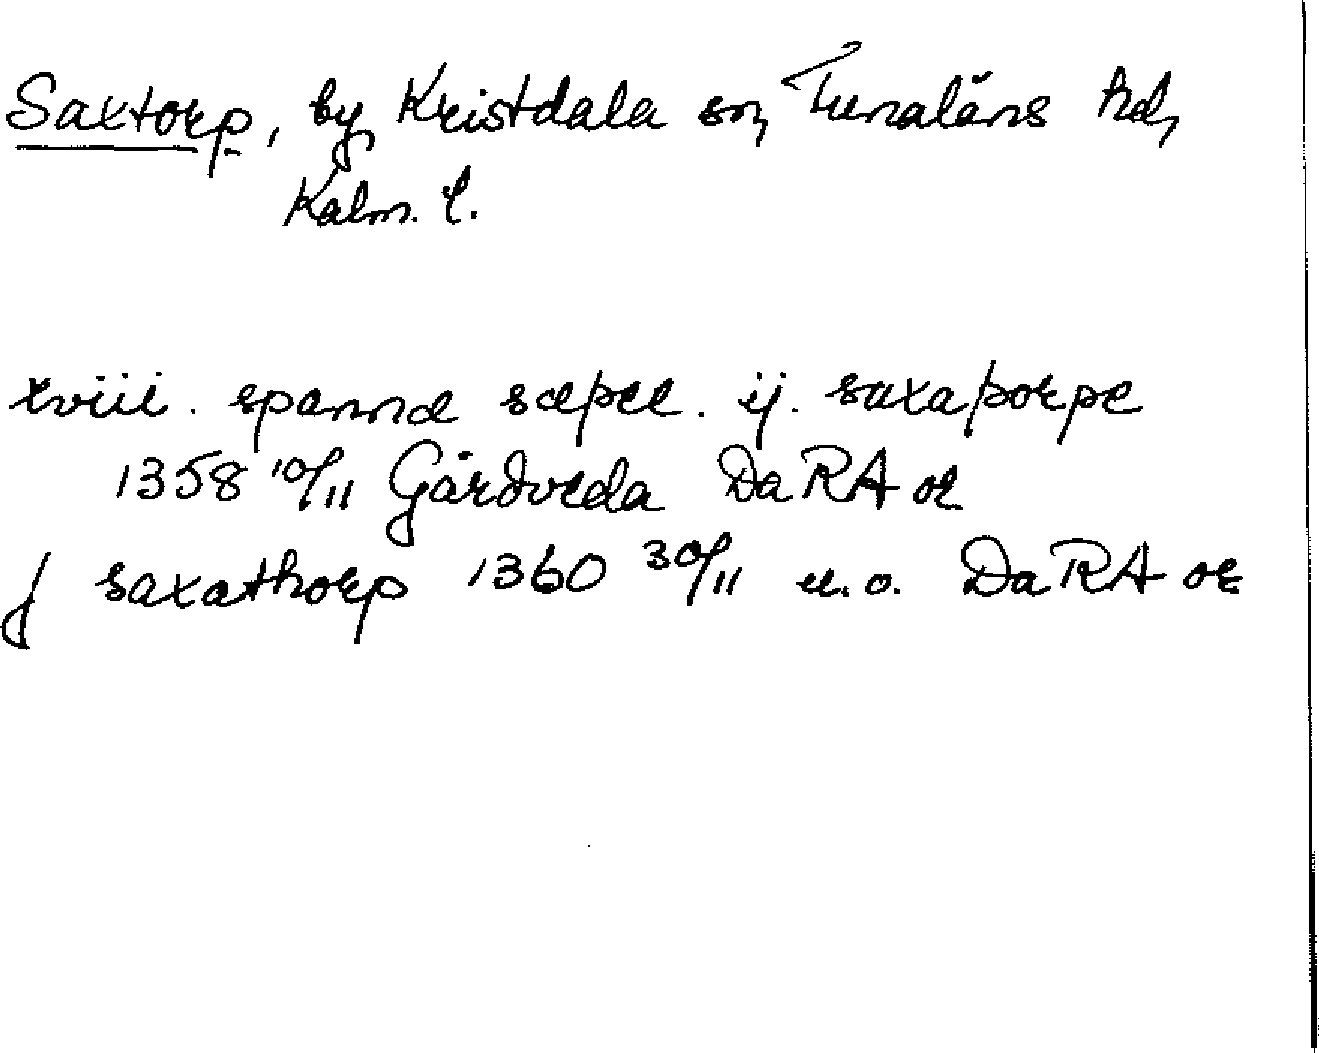 Saxtorp, by Kristdala sn, Tunaläns hd,
Kalm. l.
xviii. spanna sæþee. ij. saxaþorpe
1358 10/11 Gårdveda DaRA or
j saxathorp 1360 30/11 u.o. DaRA or